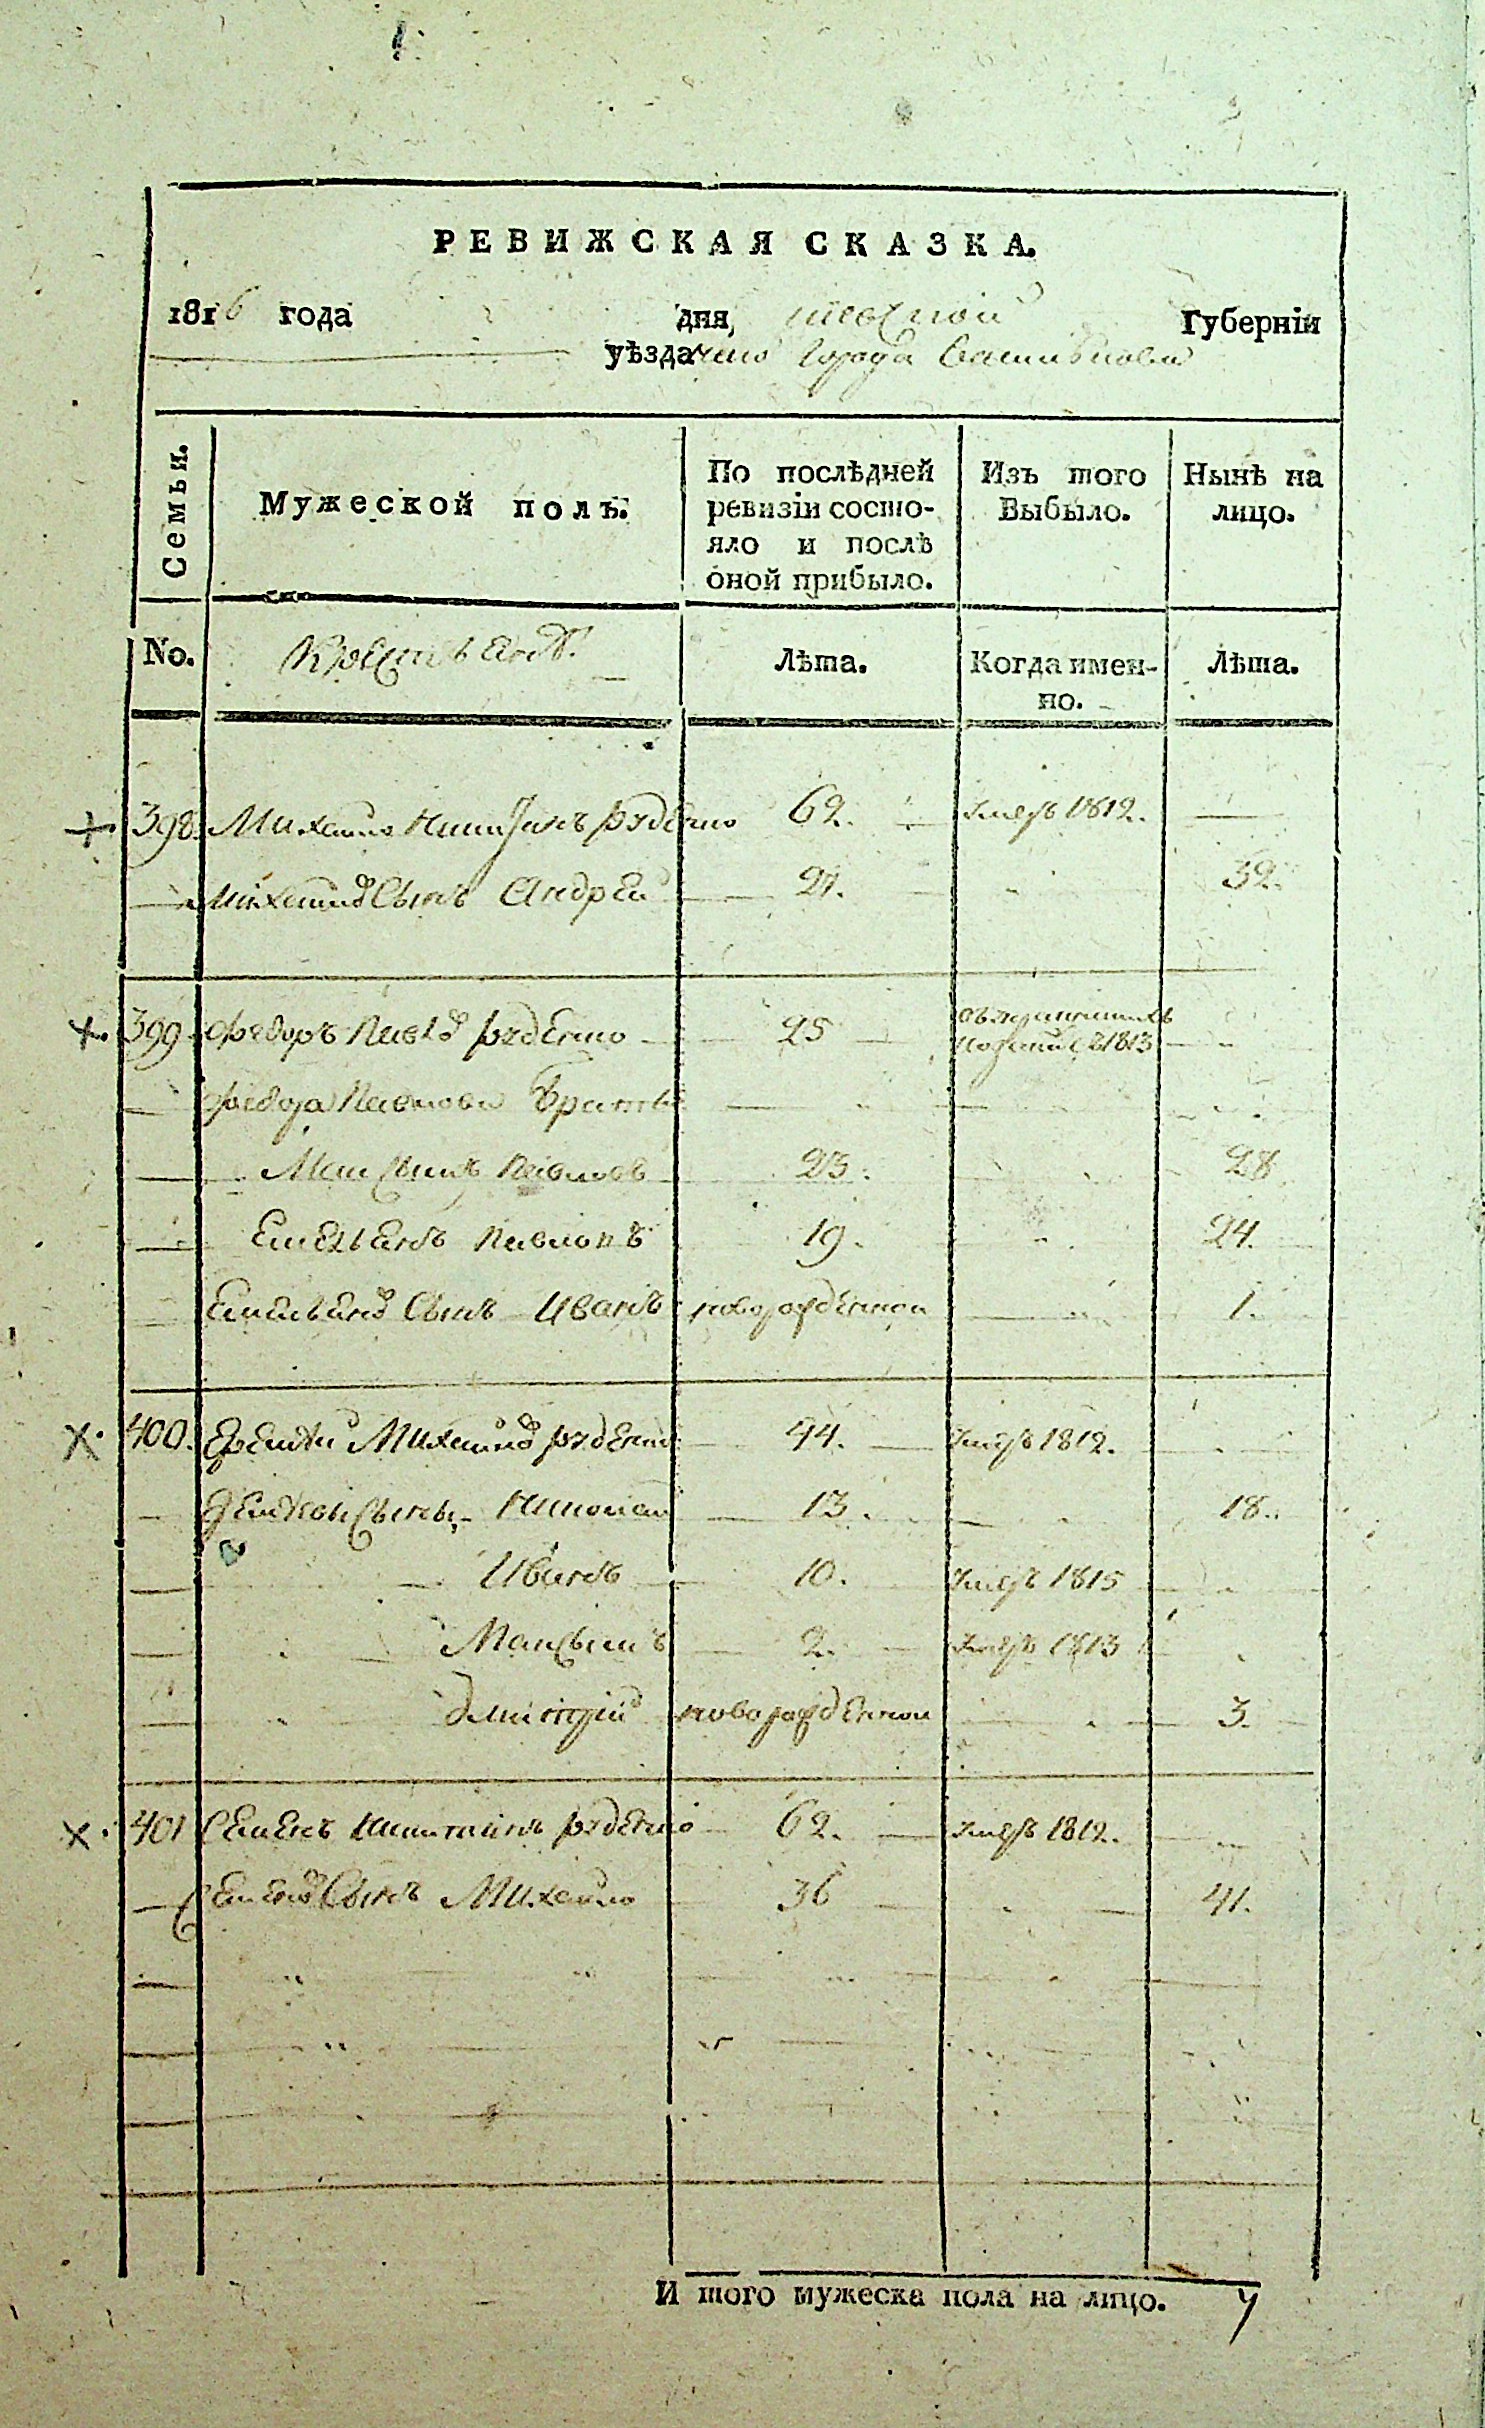 РЕВИЖСКАЯ СКАЗКА.
1816 года дня, Губерніи
уѣзда города
Семьи. Мужеской полъ. По послѣдней ревизіи состояло и послѣ оной прибыло. Изъ того Выбыло. Нынѣ на лицо.
No. Крестьянъ. Лѣта. Когда именно. Лѣта.
398. Михайло Никитинъ 62. умеръ 1812.
Михайлов Сынъ Андрей 27. 32.
399. Федоръ Павлов 25 1813
Федора Павлова братья
Максимъ Павлов 23. 28
Емельянъ Павловъ 19. 24.
Емельянов Сынъ Иванъ новорожденной 1.
400. Михайлов 44. умеръ 1812.
Сыновья Николай 13. 18.
Иванъ 10. умеръ 1815
Максимъ 2. умеръ 1813
Дмитрій новорожденной 3.
401 Семенъ Никитинъ 62. умеръ 1812.
Семенов Сынъ Михайло 36 41.
И того мужеска пола на лицо. 7